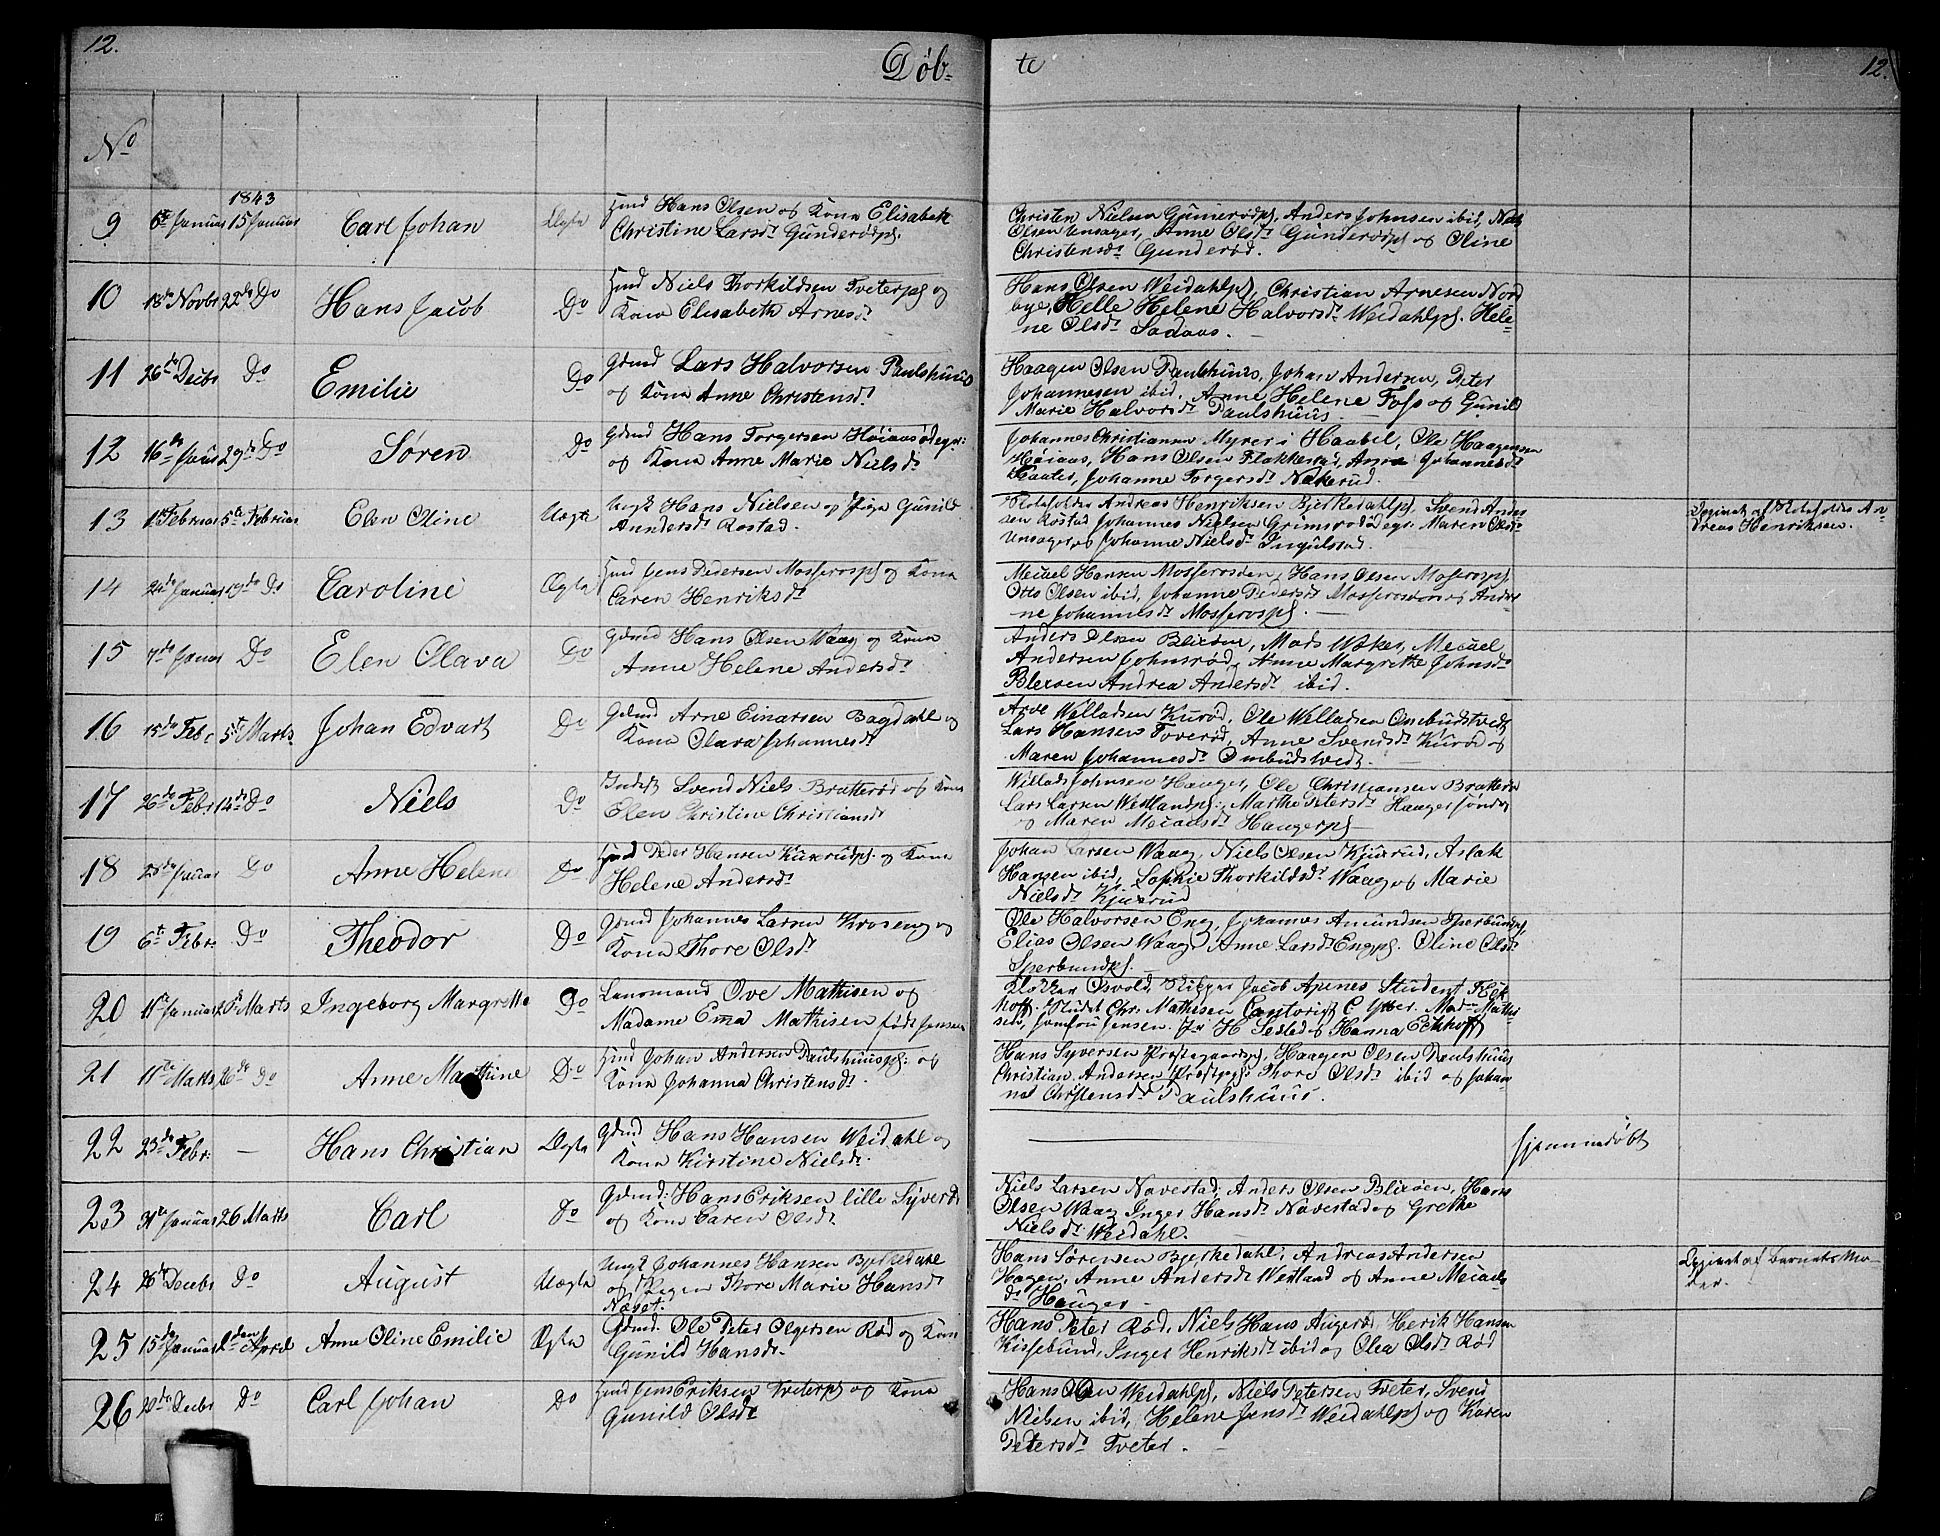 12.
Døb-
te
12.
No
1843
9 6te Januar 15 Januar Carl Johan Ægte Hmd Hans Olsen og Kona Elisabeth
Christine Larsdr Gunderødpl.
Christen Nielsen Gunnerødpl, Anders Johnsen ibid, Niels
Olsen Unsager, Anne Olsdr Gunderødpl og Oline
Christensdr Gunderød.
10 18de Novbr 22de Do Hans Jacob Do Hmd Niels Thorkildsen Tveterpl og
Kona Elisabeth Arnesdr
Hans Olsen Weidahlpl, Christian Arnesen Nord
bye, Helle Helene Halvorsdr Weidahlpl. Hele-
ne Olsdr Sadaas.
11 26de Decbr Do Emilie Do Gdmd Lars Halvorsen Paulshuus
og Kona Anne Christensdr
Haagen Olsen Paulshuus, Johan Andersen, Peter
Johannesen ibid, Anne Helene Foss og Gunild
Marie Halvorsdr Paulshuus.
12 16de Januar 29de Do Søren Do Gdmd Hans Torgersen Høiaasødegr:
og Kona Anne Marie Nielsdr
Johannes Christiansen Myrer i Haabøl, Ole Haagensen
Høiaas, Hans Olsen Flakkerud, Anne Johannesdr
Johanne Torgersdr Nakkerud.
13 1ste Februar 5te Februar Elen Oline Uægte Ungk Hans Nielsen og Pige Gunild
Anndersdr Rostad.
Andreas Henriksen Bjerkedahlpl, Svend Ander
sen Rostad Johannes Nielsen Grimsrødødegr. Maren Olsdr
Unsager, og Johanne Nielsdr Ingulstad.
Opgivet af Andreas Henriksen.
14 24de Januar 19de Do Caroline Ægte Hmd Jens Pedersen Mosserospl og Kona
Caren Henriksdr
Micael Hansen Mosserosden, Hans Olsen Mosserospl.
Otto Olsen ibid, Johanne Pedersdr Mosserosden og Andri
ne Johannesdr Mosserospl.
15 7de Januar Do Elen Olava Do Gdmd Hans Olsen Waag og Kona
Anne Helene Andersdr
Anders Olsen Bliesen, Mads Waker, Micael
Andersen Johnsrød, Anne Margrethe Johnsdr
Bliesen Andrea Andersdr ibid.
16 15de Febr 5te Marts Johan Edvart Do Gdmd Arne Einarsen Bagdahl og
Kona Olava Johannesdr
Arve Welladsen Kurød, Ole Welladsen Ombudstvedt
Lars Hansen Toverød, Anne Svendsdr Kurød og
Maren Johannesdr Ombudstvedt.
17 26de Febr 12de Do Niels Do Inderst Svend Niels Bratterød og Kona
Elen Christine Christiansdr
Willads Johnsen Hauger, Ole Christiansen Bratterød
Lars Larsen Westlandpl, Marthe Petersdr Hauger søndre
og Maren Micaelsdr Haugerpl
18 25de Januar Do Anne Helene Do Hmd Peder Hansen Kuxerudpl. og Kona
Helene Andersdr
Johan Larsen Waag, Niels Olsen Kjuxrud, Aslak
Hansen ibid, Sophie Thorkildsdr Waag og Marie
Nielsdr Kjuxrud
19 6te Febr. Do Theodor Do Gdmd Johannes Larsen Kroseng og
Kona Thore Olsdr
Ole Halvorsen Eng, Johannes Amundsen Sperbundpl,
Elias Olsen Waag, Anne Larsdr Engpl. Oline Olsdr
Sperbundpl.
20 11te Januar Marts Ingeborg Margrethe Do Lensmand Ove Mathisen og
Madame Emma Mathisen født Jensen
Klokker Osvold, Skipper Jacob Apenes Student Eck
hoff, Student Chr. Mathisen C Ytter. Mad. Mathi-
sen, Jomfru Jensen. H Sested og Hanna Eckhoff
21 11te Marts 26de Do Anne Mathine Do Hmd Johan Andersen Paulshuuspl: og
Kona Johanna Christensdr.
Hans Syversen Prestegaardpl, Haagen Olsen Paulshuus
Christian Andersen Thore Olsdr ibid og Johan
ne Christensdr Paulshuus.
22 23de Febr. — Hans Christian Ægte Gdmd Hans Hansen Weidahl og
Kona Kirstine Nielsdr.
hjemmedøbt
23 31te Januar 26 Marts Carl Do Gdmd: Hans Eriksen lille Syverød
og Kona Caren Olsdr
Niels Larsen Navestad, Anders Olsen Bliesen, Hans
Olsen Waag Inger Hansdr Navestad og Grethe
Nielsdr Weidahl.
24 26de Decbr Do August Uægte Ungk Johannes Hansen Bjerkedahl
og Pigen Thore Marie Hansdr
Næset.
Hans Sørensen Bjerkedahl, Andreas Andersen
Hagen, Anne Andersdr Westland og Anne Micaels
dr Hauger.
Opgivet af Barnets Mo-
der.
25 15de Januar den April Anne Oline Emilie Ægte Gdmd. Ole Peter Olgersen Rød og Kona
Gunild Hansdr.
Hans Peter Rød, Niels Hans Augerød Henrik Hansen
Kissebund, Inger Henriksdr ibid og Olea Olsdr Rød
26 20de Decbr Do Carl Johan Do Hmd Jens Eriksen Tveterpl og Kona
Gunild Olsdr
Hans Olsen Weidahlpl, Niels Petersen Tveter, Svend
Nielsen ibid, Helene Jensdr Weidahlpl og Karen
Petersdr Tveter.